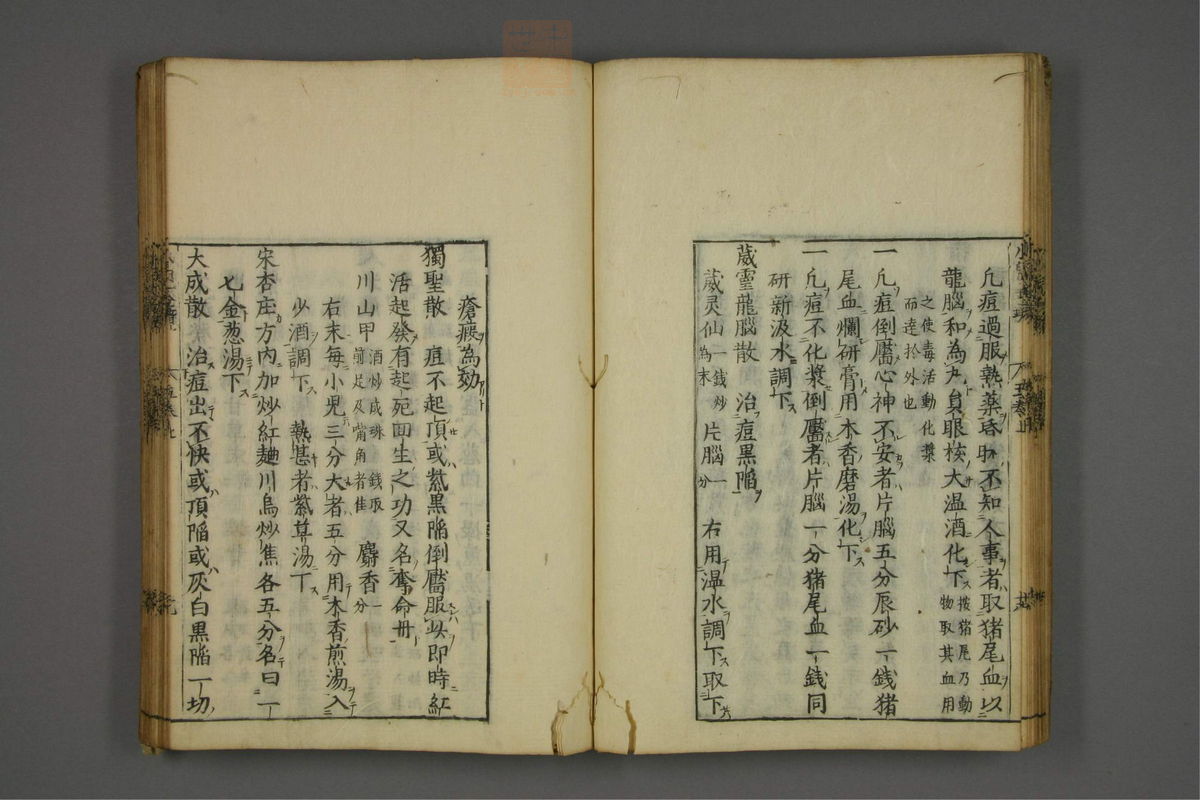 凢痘過服熱藥昏眊不知人事者取猪尾血以
龍腦和為丸𧴲眼核大温酒化下 按猪尾乃動
物取其血用
之使毒活動化漿
而達扵外也
一 凢痘倒靨心神不安者片腦五分辰砂一錢猪
尾血爛研膏用木香磨湯化下
一 凢痘不化漿倒靨者片腦一分猪尾血一錢同
研新汲水調下
葳靈龍腦散 治痘黒陷
葳灵仙 一錢炒
為末 片腦 一
分 右用温水調下取下
瘡癍為効
獨聖散 痘不起頂或紫黒陷倒靨服此即時紅
活起發有起死囬生之功又名奪命丹
川山甲 酒炒成珠一錢取
前足及嘴角者佳 麝香 一
分
右末每小児三分大者五分用木香煎湯入
少酒調下熱甚者紫草湯下
宋杏庄方内加炒紅麯川烏炒焦各五分名曰一
七金葱湯下
大成散 治痘出不快或頂陷或灰白黒陷一切